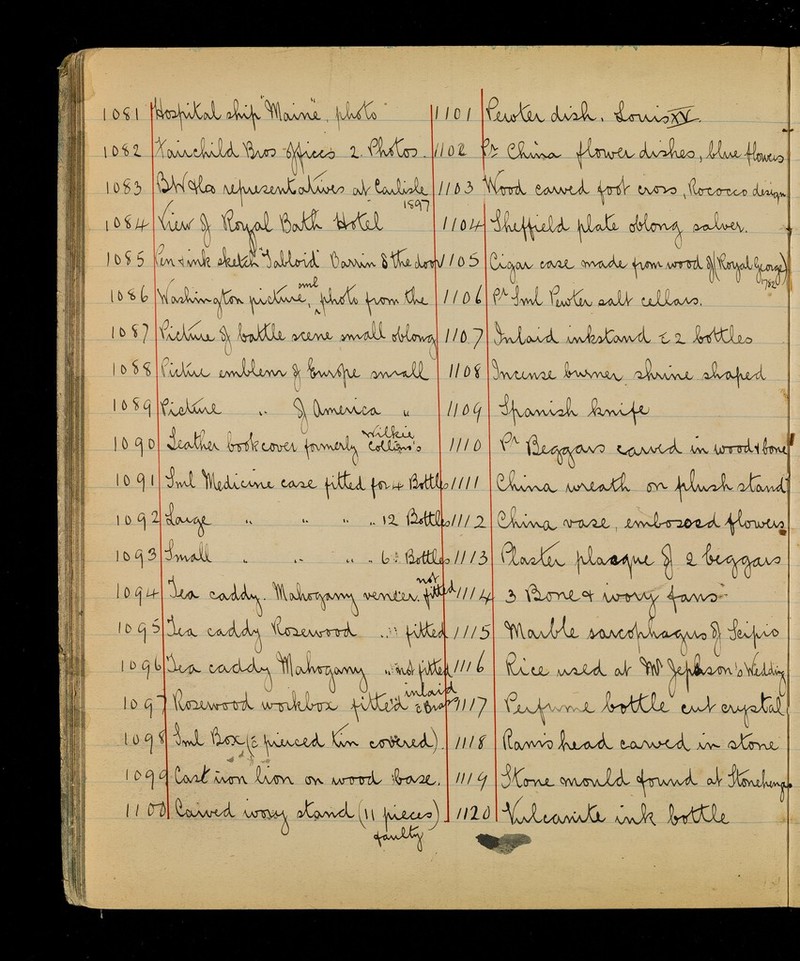 1081 Hospital ship "Maine", photo
1082 Fairchild Bros offices 2 Photos.
1083 BW & Co representatives at Carlisle 1897
1084 View of Royal Bath Hotel
1085 Pen & ink sketch "Tabloid" Barrin & the door
1086 Washington picture, sml photo from the
1087 Picture of battle scene small oblong
1088 Picture emblem of Europe small
1089 Picture " of America "
1090 Leather book cover formerly Wilkie Collins's
1091 Sml Medicine case fitted for 4 Bottles
1092 Large " " " " 12 Bottles
1093 Small " " " " 6 : Bottles
1094 Tea caddy. Mahogany veneer. not fitted
1095 Tea caddy Rosewood " " fitted
1096 Tea caddy Mahogany " not fitted
1097 Rosewood workbox fitted inlaid c̄ brass
1098 Sml Box (c̄ pierced tin covered).
1099 Cast iron lion on wood base.
1100 Carved ivory stand (11 pieces) faulty
1101 Pewter dish. Louis XV.
1102 Pr China flower dishes, blue flowers
1103 Wood carved foot cross, Rococco design
1104 Sheffield plate oblong salver.
1105 Cigar case made from wood of (Royal George) 1782
1106 Pr Sml Pewter salt cellars.
1107 Inlaid inkstand c̄ 2 bottles
1108 Incense burner shrine shaped
1109 Spanish knife
1110 Pr Beggars carved in wood & bone
1111 China wreath on plush stand
1112 China vase, embossed flowers
1113 Plaster plaque of 2 beggars
1114 3 Bone & ivory fans
1115 Marble sarcophagus of Scipio
1116 Rice used at Mr Jephson's Wedding
1117 Perfume bottle cut crystal
1118 Ram's head carved in stone
1119 Stone mould found at Stonehenge
1120 Vulcanite ink bottle